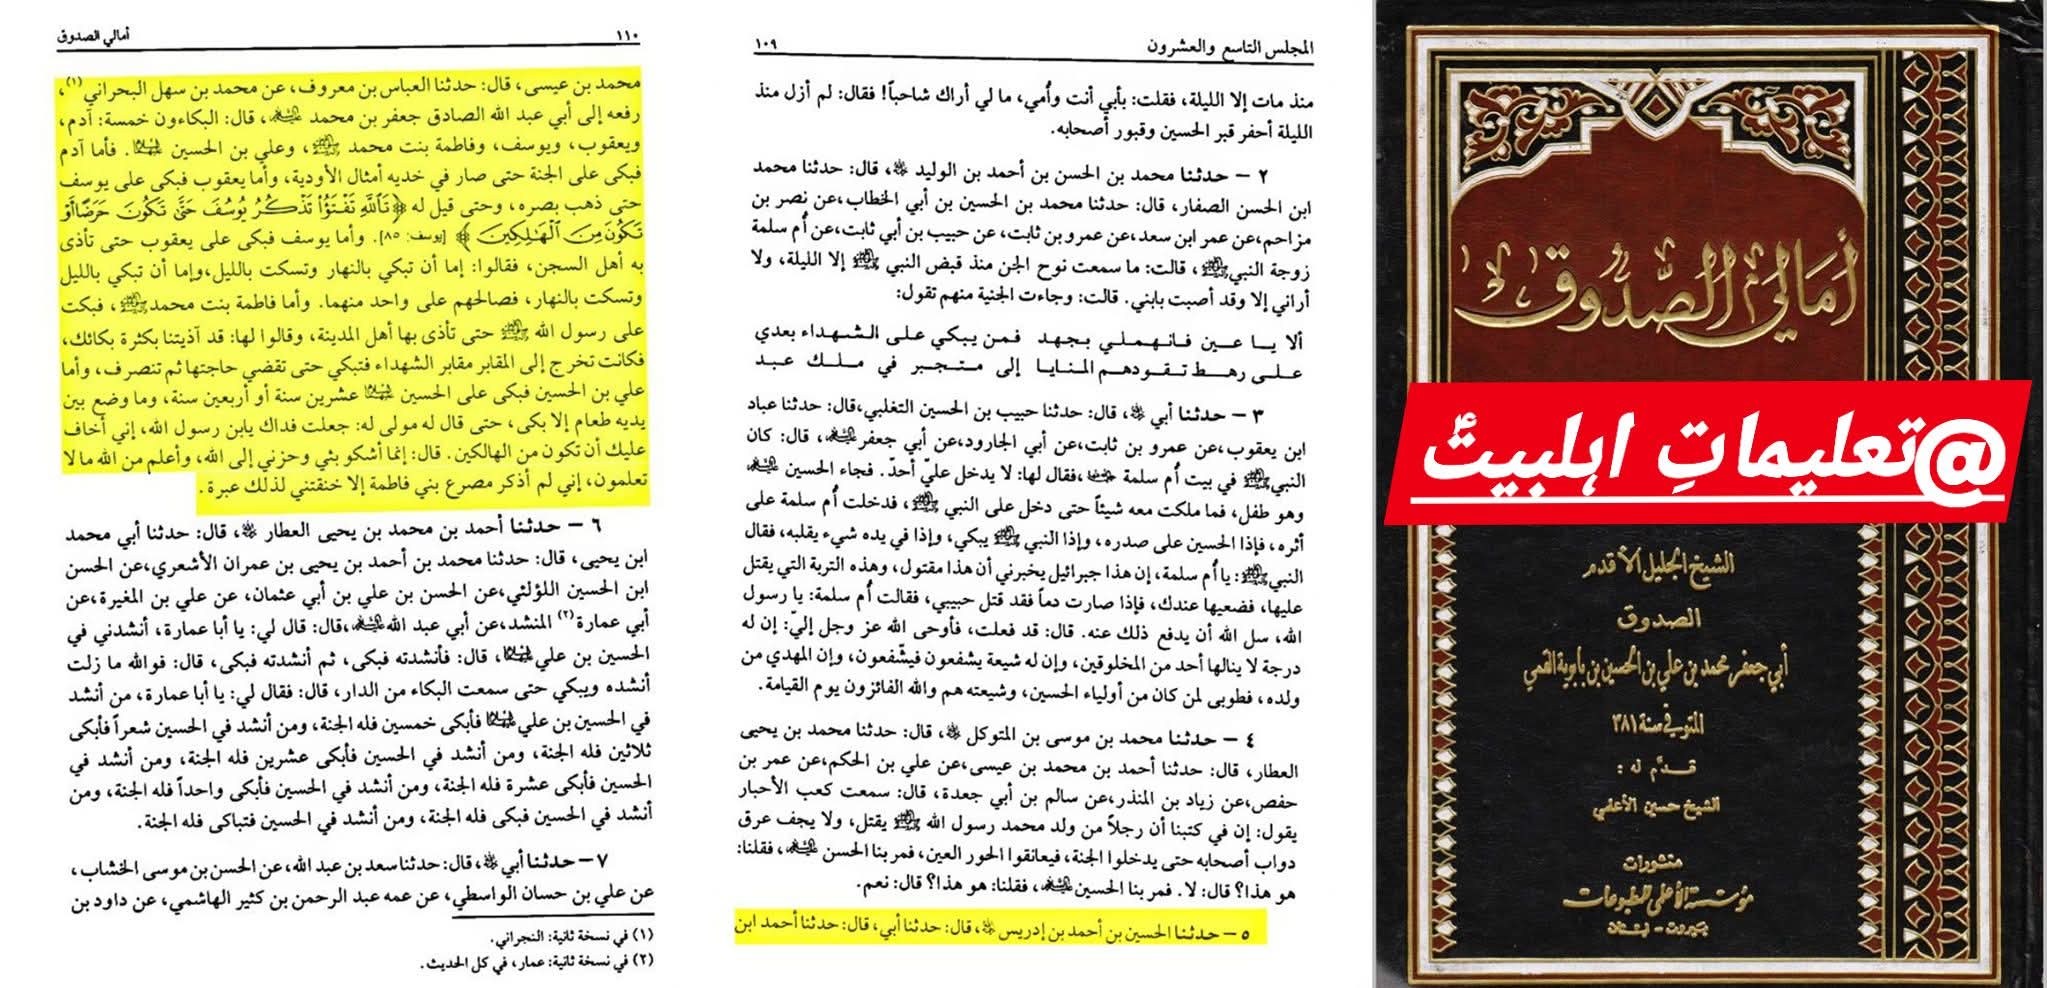 المجلس التاسع والعشرون ١٠٩
منذ مات إلا الليلة، فقلت: بأبي أنت وأمي، ما لي أراك شاحباً! فقال: لم أزل منذ
الليلة أحفر قبر الحسين وقبور أصحابه.
٢ - حدثنا محمد بن الحسن بن أحمد بن الوليد ، قال: حدثنا محمد
ابن الحسن الصفار، قال: حدثنا محمد بن الحسين بن أبي الخطاب،عن نصر بن
مزاحم،عن عمر ابن سعد،عن عمرو بن ثابت، عن حبيب بن أبي ثابت،عن أم سلمة
زوجة النبي ﷺ ، قالت: ما سمعت نوح الجن منذ قبض النبي ﷺ إلا الليلة، ولا
أراني إلا وقد أصبت بابني. قالت: وجاءت الجنية منهم تقول:
ألا يا عين فانهملي بجهد فمن يبكي على الشهداء بعدي
على رهط تقودهم المنايا إلى متجبر في ملك عبد
٣ - حدثنا أبي ، قال: حدثنا حبيب بن الحسين التغلبي،قال: حدثنا عباد
ابن يعقوب،عن عمرو بن ثابت،عن أبي الجارود،عن أبي جعفر ، قال: كان
النبي ﷺ في بيت أم سلمة ،فقال لها: لا يدخل عليّ أحدّ. فجاء الحسين
وهو طفل، فما ملكت معه شيئاً حتى دخل على النبي ﷺ، فدخلت أم سلمة على
أثره، فإذا الحسين على صدره، وإذا النبي ﷺ يبكي، وإذا في يده شيء يقلبه، فقال
النبي ﷺ: يا أم سلمة، إن هذا جبرائيل يخبرني أن هذا مقتول، وهذه التربة التي يقتل
عليها، فضعيها عندك، فإذا صارت دماً فقد قتل حبيبي، فقالت أم سلمة: يا رسول
الله، سل الله أن يدفع ذلك عنه. قال: قد فعلت، فأوحى الله عز وجل إليّ: إن له
درجة لا ينالها أحد من المخلوقين، وإن له شيعة يشفعون فيشّفعون، وإن المهدي من
ولده، فطوبى لمن كان من أولياء الحسين، وشيعته هم والله الفائزون يوم القيامة.
٤ - حدثنا محمد بن موسى بن المتوكل ، قال: حدثنا محمد بن يحيى
العطار، قال: حدثنا أحمد بن محمد بن عيسى،عن علي بن الحكم،عن عمر بن
حفص،عن زياد بن المنذر،عن سالم بن أبي جعدة، قال: سمعت كعب الأحبار
يقول: إن في كتبنا أن رجلاً من ولد محمد رسول الله ﷺ يقتل، ولا يجف عرق
دواب أصحابه حتى يدخلوا الجنة، فيعانقوا الحور العين، فمر بنا الحسن ، فقلنا:
هو هذا؟ قال: لا. فمر بنا الحسين ، فقلنا: هو هذا؟ قال: نعم.
٥ - حدثنا الحسين بن أحمد بن إدريس ، قال: حدثنا أبي، قال: حدثنا أحمد ابن
١١٠ أمالي الصدوق
محمد بن عيسى، قال: حدثنا العباس بن معروف، عن محمد بن سهل البحراني(١)،
رفعه إلى أبي عبد الله الصادق جعفر بن محمد ، قال: البكاءون خمسة: آدم،
ويعقوب، ويوسف، وفاطمة بنت محمد ﷺ، وعلي بن الحسين . فأما آدم
فبكى على الجنة حتى صار في خديه أمثال الأودية، وأما يعقوب فبكى على يوسف
حتى ذهب بصره، وحتى قيل له ﴿تَاللَّهِ تَفْتَؤُا تَذْكُرُ يُوسُفَ حَتَّى تَكُونَ حَرَضًا أَوْ
تَكُونَ مِنَ الْهَالِكِينَ﴾ [يوسف: ٨٥]. وأما يوسف فبكى على يعقوب حتى تأذى
به أهل السجن، فقالوا: إما أن تبكي بالنهار وتسكت بالليل،وإما أن تبكي بالليل
وتسكت بالنهار، فصالحهم على واحد منهما. وأما فاطمة بنت محمد ﷺ، فبكت
على رسول الله ﷺ حتى تأذى بها أهل المدينة، وقالوا لها: قد آذيتنا بكثرة بكائك،
فكانت تخرج إلى المقابر مقابر الشهداء فتبكي حتى تقضي حاجتها ثم تنصرف، وأما
علي بن الحسين فبكى على الحسين عشرين سنة أو أربعين سنة، وما وضع بين
يديه طعام إلا بكى، حتى قال له مولى له: جعلت فداك يابن رسول الله، إني أخاف
عليك أن تكون من الهالكين. قال: إنما أشكو بثي وحزني إلى الله، وأعلم من الله ما لا
تعلمون، إني لم أذكر مصرع بني فاطمة إلا خنقتني لذلك عبرة.
٦ - حدثنا أحمد بن محمد بن يحيى العطار ، قال: حدثنا أبي محمد
ابن يحيى، قال: حدثنا محمد بن أحمد بن يحيى بن عمران الأشعري،عن الحسن
ابن الحسين اللؤلئي،عن الحسن بن علي بن أبي عثمان، عن علي بن المغيرة،عن
أبي عمارة(٢) المنشد،عن أبي عبد الله ،قال: قال لي: يا أبا عمارة، أنشدني في
الحسين بن علي ، قال: فأنشدته فبكى، ثم أنشدته فبكى، قال: فوالله ما زلت
أنشده ويبكي حتى سمعت البكاء من الدار، قال: فقال لي: يا أبا عمارة، من أنشد
في الحسين بن علي فأبكى خمسين فله الجنة، ومن أنشد في الحسين شعراً فأبكى
ثلاثين فله الجنة، ومن أنشد في الحسين فأبكى عشرين فله الجنة، ومن أنشد في
الحسين فأبكى عشرة فله الجنة، ومن أنشد في الحسين فأبكى واحداً فله الجنة، ومن
أنشد في الحسين فبكى فله الجنة، ومن أنشد في الحسين فتباكى فله الجنة.
٧ - حدثنا أبي ، قال: حدثنا سعد بن عبد الله، عن الحسن بن موسى الخشاب،
عن علي بن حسان الواسطي، عن عمه عبد الرحمن بن كثير الهاشمي، عن داود بن
(١) في نسخة ثانية: النجراني.
(٢) في نسخة ثانية: عمار، في كل الحديث.
أمالي الصدوق
@تعلیماتِ اہلبیتؑ
الشيخ الجليل الأقدم
الصدوق
أبي جعفر محمد بن علي بن الحسين بن بابويه القمي
المتوفى سنة ٣٨١
قدّم له :
الشيخ حسين الأعلمي
منشورات
مؤسسة الأعلمي للمطبوعات
بيروت - لبنان